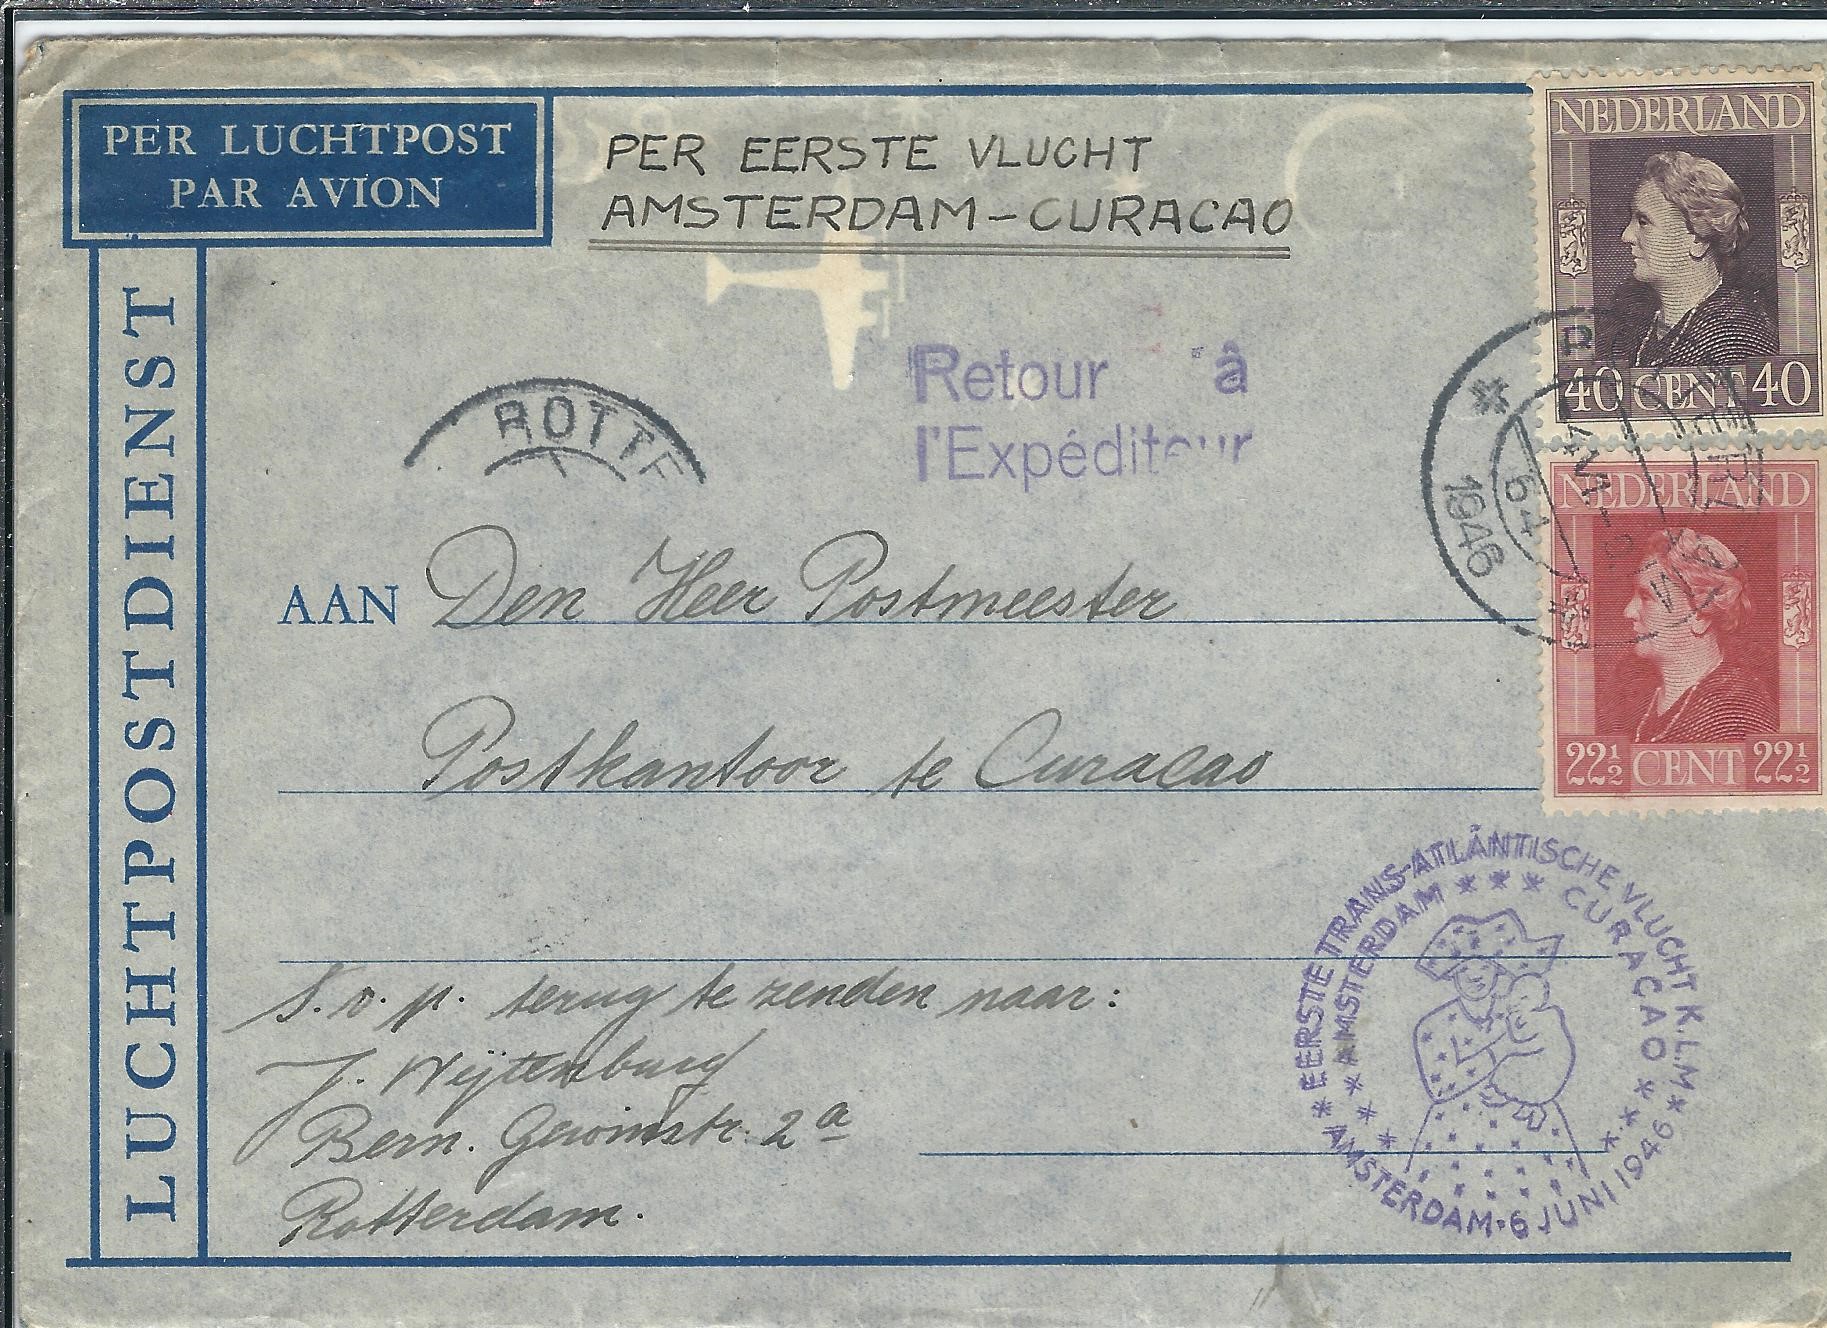 PER LUCHTPOST
PAR AVION
PER EERSTE VLUCHT
AMSTERDAM-CURACAO
NEDERLAND
40 CENT 40
NEDERLAND
22½ CENT 22½
LUCHTPOSTDIENST
Retour à
l'Expéditeur
ROTTE
64
1946
AAN Den Heer Postmeester
Postkantoor te Curacao
S.v.p. terug te zenden naar:
J. Wijtenburg
Bern. Gewinstr. 2a
Rotterdam.
* EERSTE TRANS-ATLANTISCHE VLUCHT K.L.M *
AMSTERDAM *** CURAÇAO
AMSTERDAM · 6 JUNI 1946